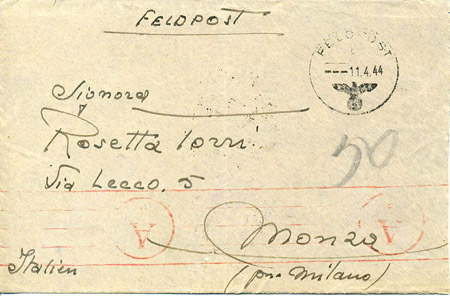 FELDPOST
FELDPOST
---11.4.44
Signora
Rosetta Torri
Via Lecco, 5
A
A
Monza
Italien
(pr. Milano)